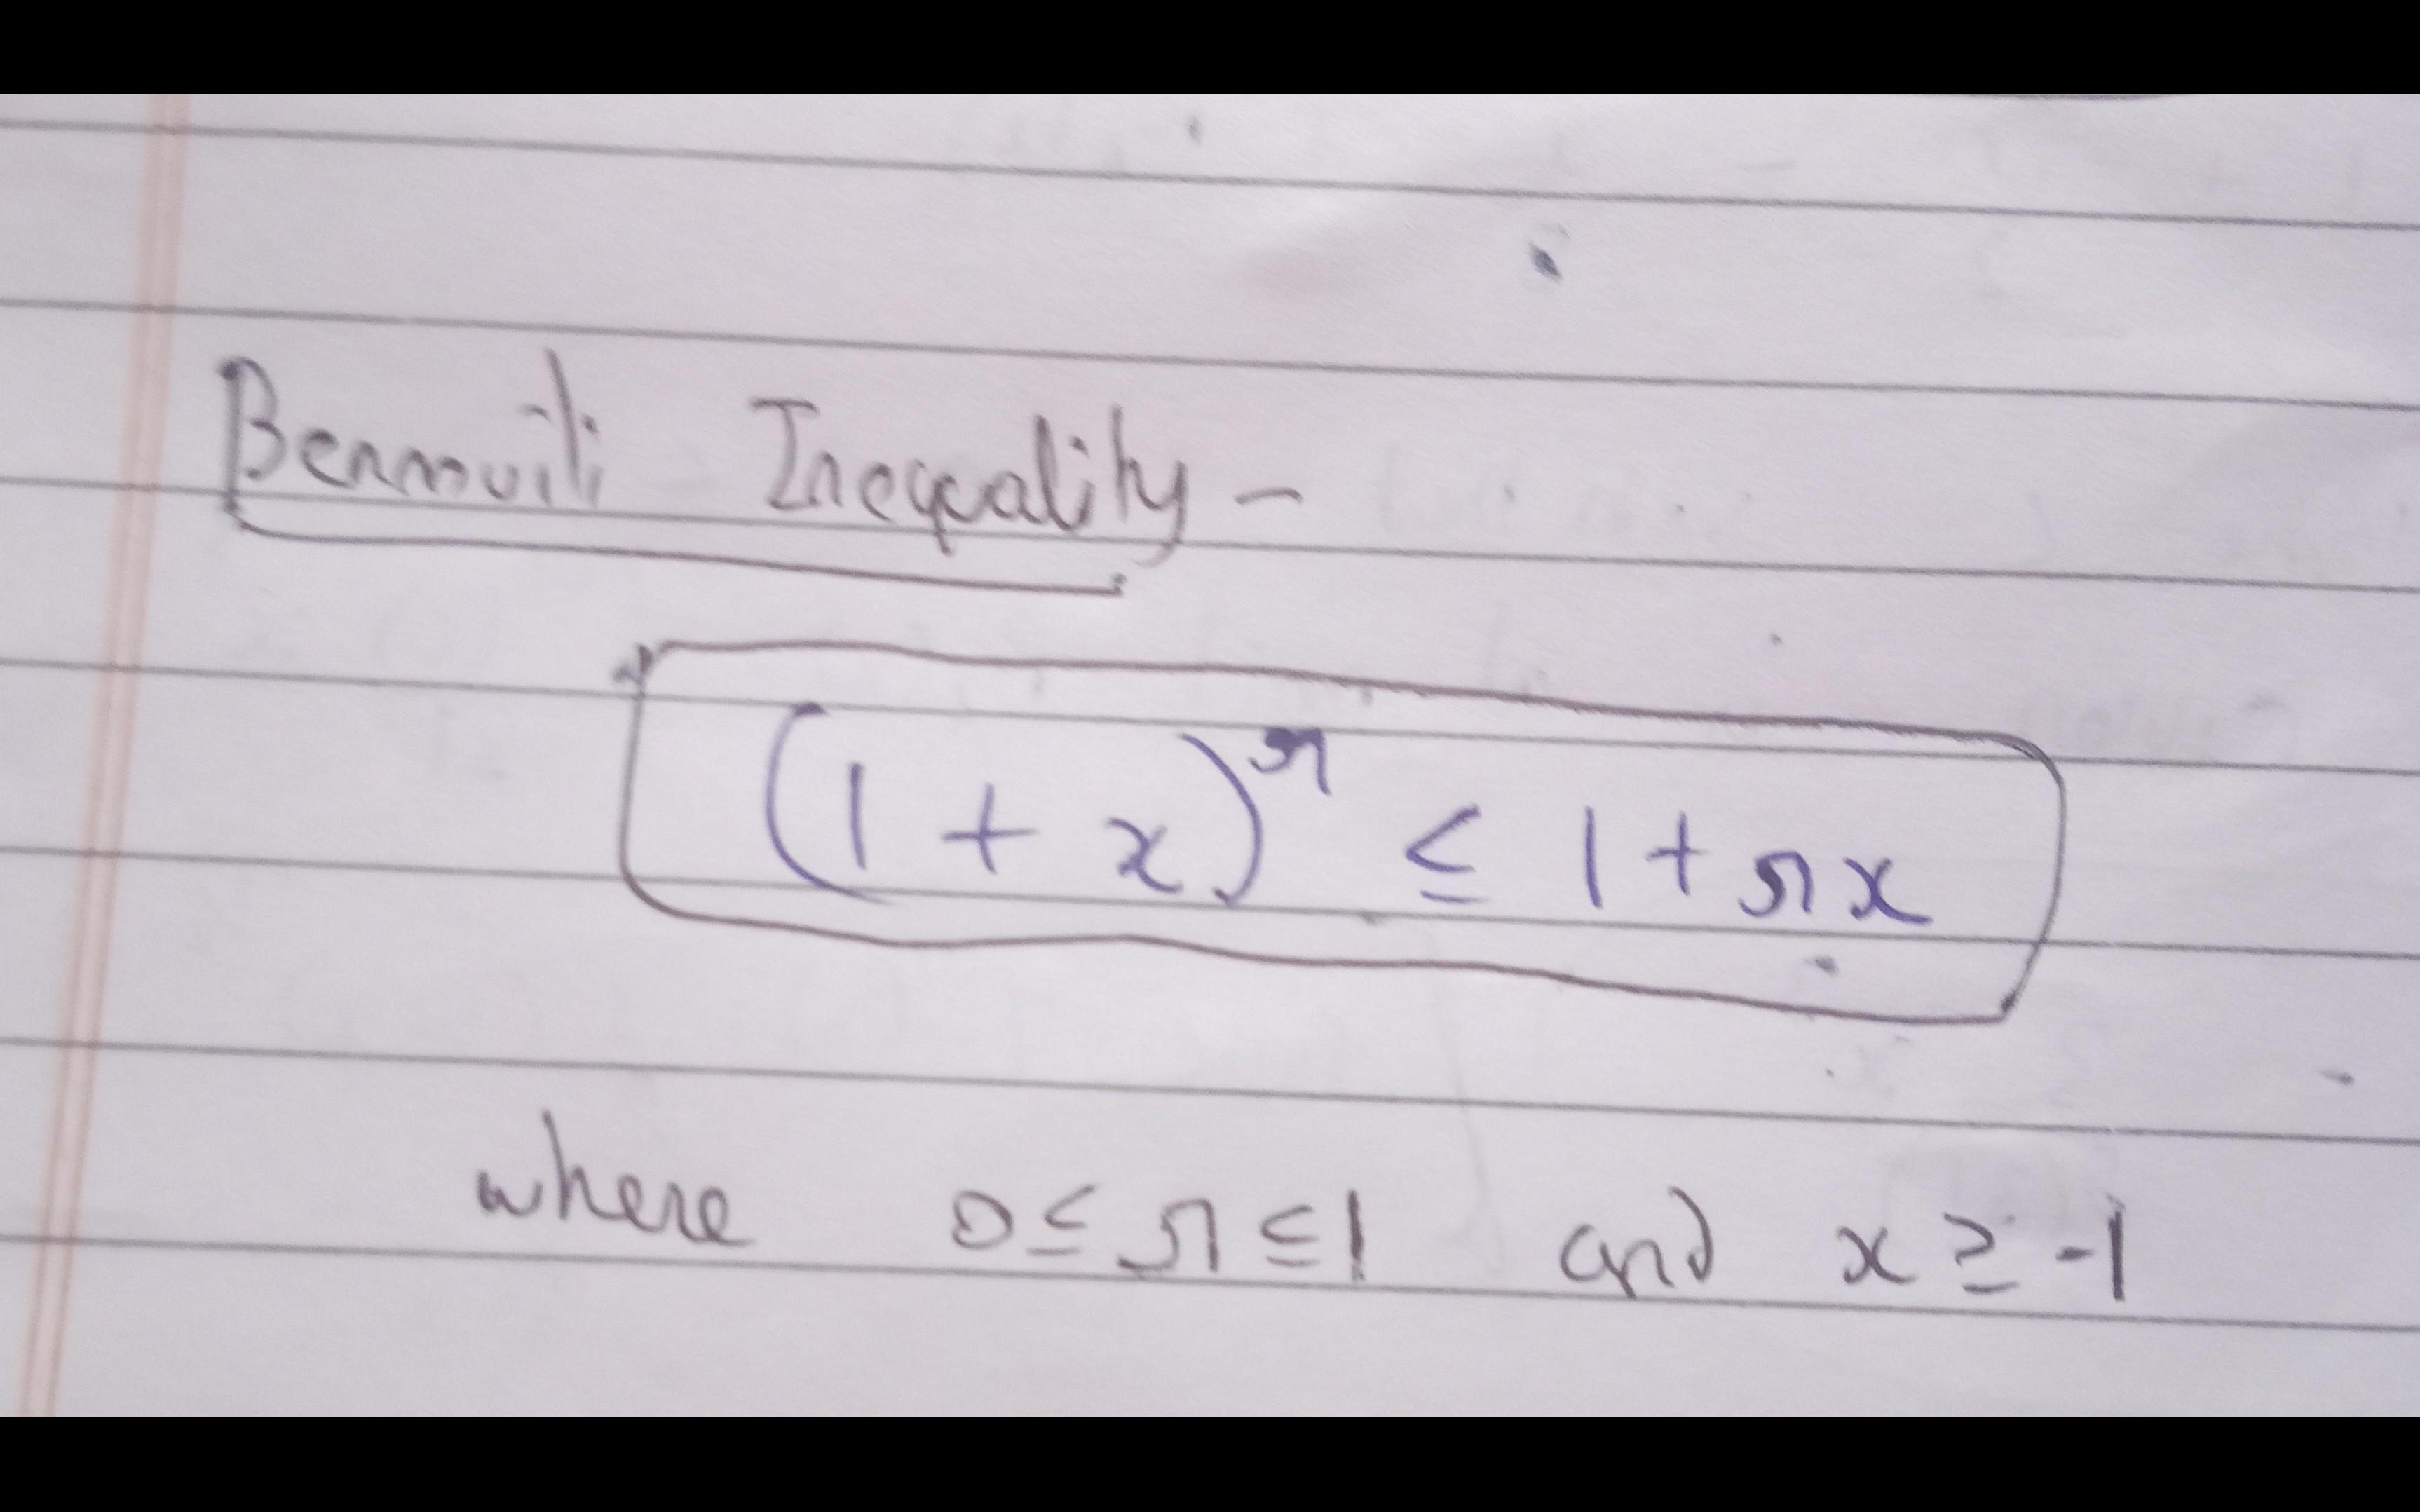 Bernouili Inequality -
(1 + x)^r ≤ 1 + rx
where 0 ≤ r ≤ 1 and x ≥ -1